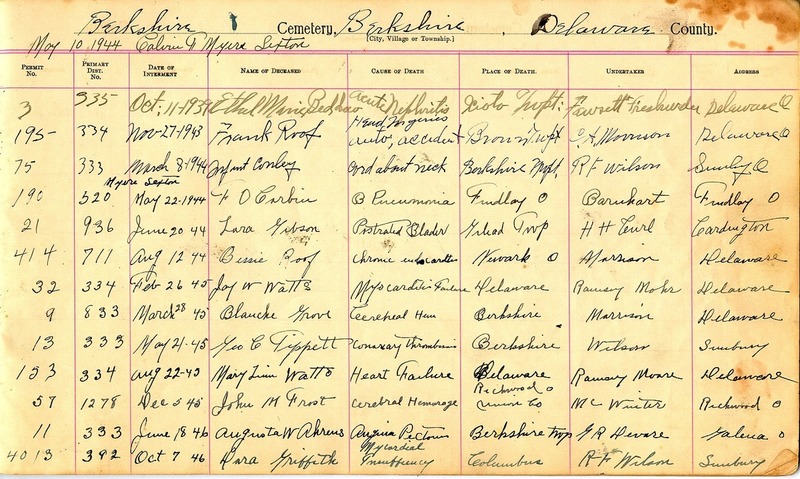 Berkshire Cemetery, Berkshire, Delaware County.
[City, Village or Township.]
May 10 1944 Calvin T Myers Sexton
PERMIT No. PRIMARY DIST. No. DATE OF INTERMENT NAME OF DECEASED CAUSE OF DEATH PLACE OF DEATH. UNDERTAKER ADDRESS
3 335 Oct. 11-1939 Ethel Marie acute Nephritis Scioto Twpt. Fawcett Delaware O
Head Injuries
195- 334 Nov-27-1943 Frank Roof auto, accident Brown Twpt Morrison Delaware O
75 333 March 8-1944 Infant Conley Cord about neck Berkshire Twpt. R F Wilson Sunby O
Myers Sexton
190 520 May 22-1944 F D Corbin B Pneumonia Findlay O Barnhart Findlay O
21 936 June 20 44 Lara Gibson Prostrated Blader Gilead Twp H H Curl Cardington
414 711 Aug 12 44 Bessie Roof Chronic Newark O Morrison Delaware
32 334 Feb 26 45 Jay W Watts Myocarditis Failure Delaware Ramsey Mohr Delaware
9 833 March 28 45 Blanche Grove Cerebral Hem Berkshire Morrison Delaware
13 333 May 21-45 Geo C Tippett Conarary thrombosis Berkshire Wilson Sunbury
153 334 Aug 22-45 Mary Linn Watts Heart Failure Delaware Ramsey Moore Delaware
Richwood O
57 1278 Dec 5 45 John M Frost Cerebral Hemorage Union Co Mc Winter Richwood O
11 333 June 18 46 Augusta W Ahrens Angina Pectoris Berkshire Twp G R Devore Galena O
Myocardial
4013 392 Oct 7 46 Dara Griffith Insuffiency Columbus R F Wilson Sunbury